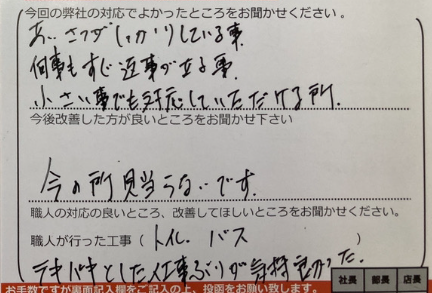 今回の弊社の対応でよかったところをお聞かせください。
あいさつがしっかりしている事
何事もすぐ返事が出る事
小さい事でも対応していただける所.
今後改善した方が良いところをお聞かせ下さい
今の所見当らないです.
職人の対応の良いところ、改善してほしいところをお聞かせください。
職人が行った工事（トイレ バス）
テキパキとした仕事ぶりが気持良かった.
社長 部長 店長
お手数ですが裏面記入欄をご記入の上、投函をお願い致します。